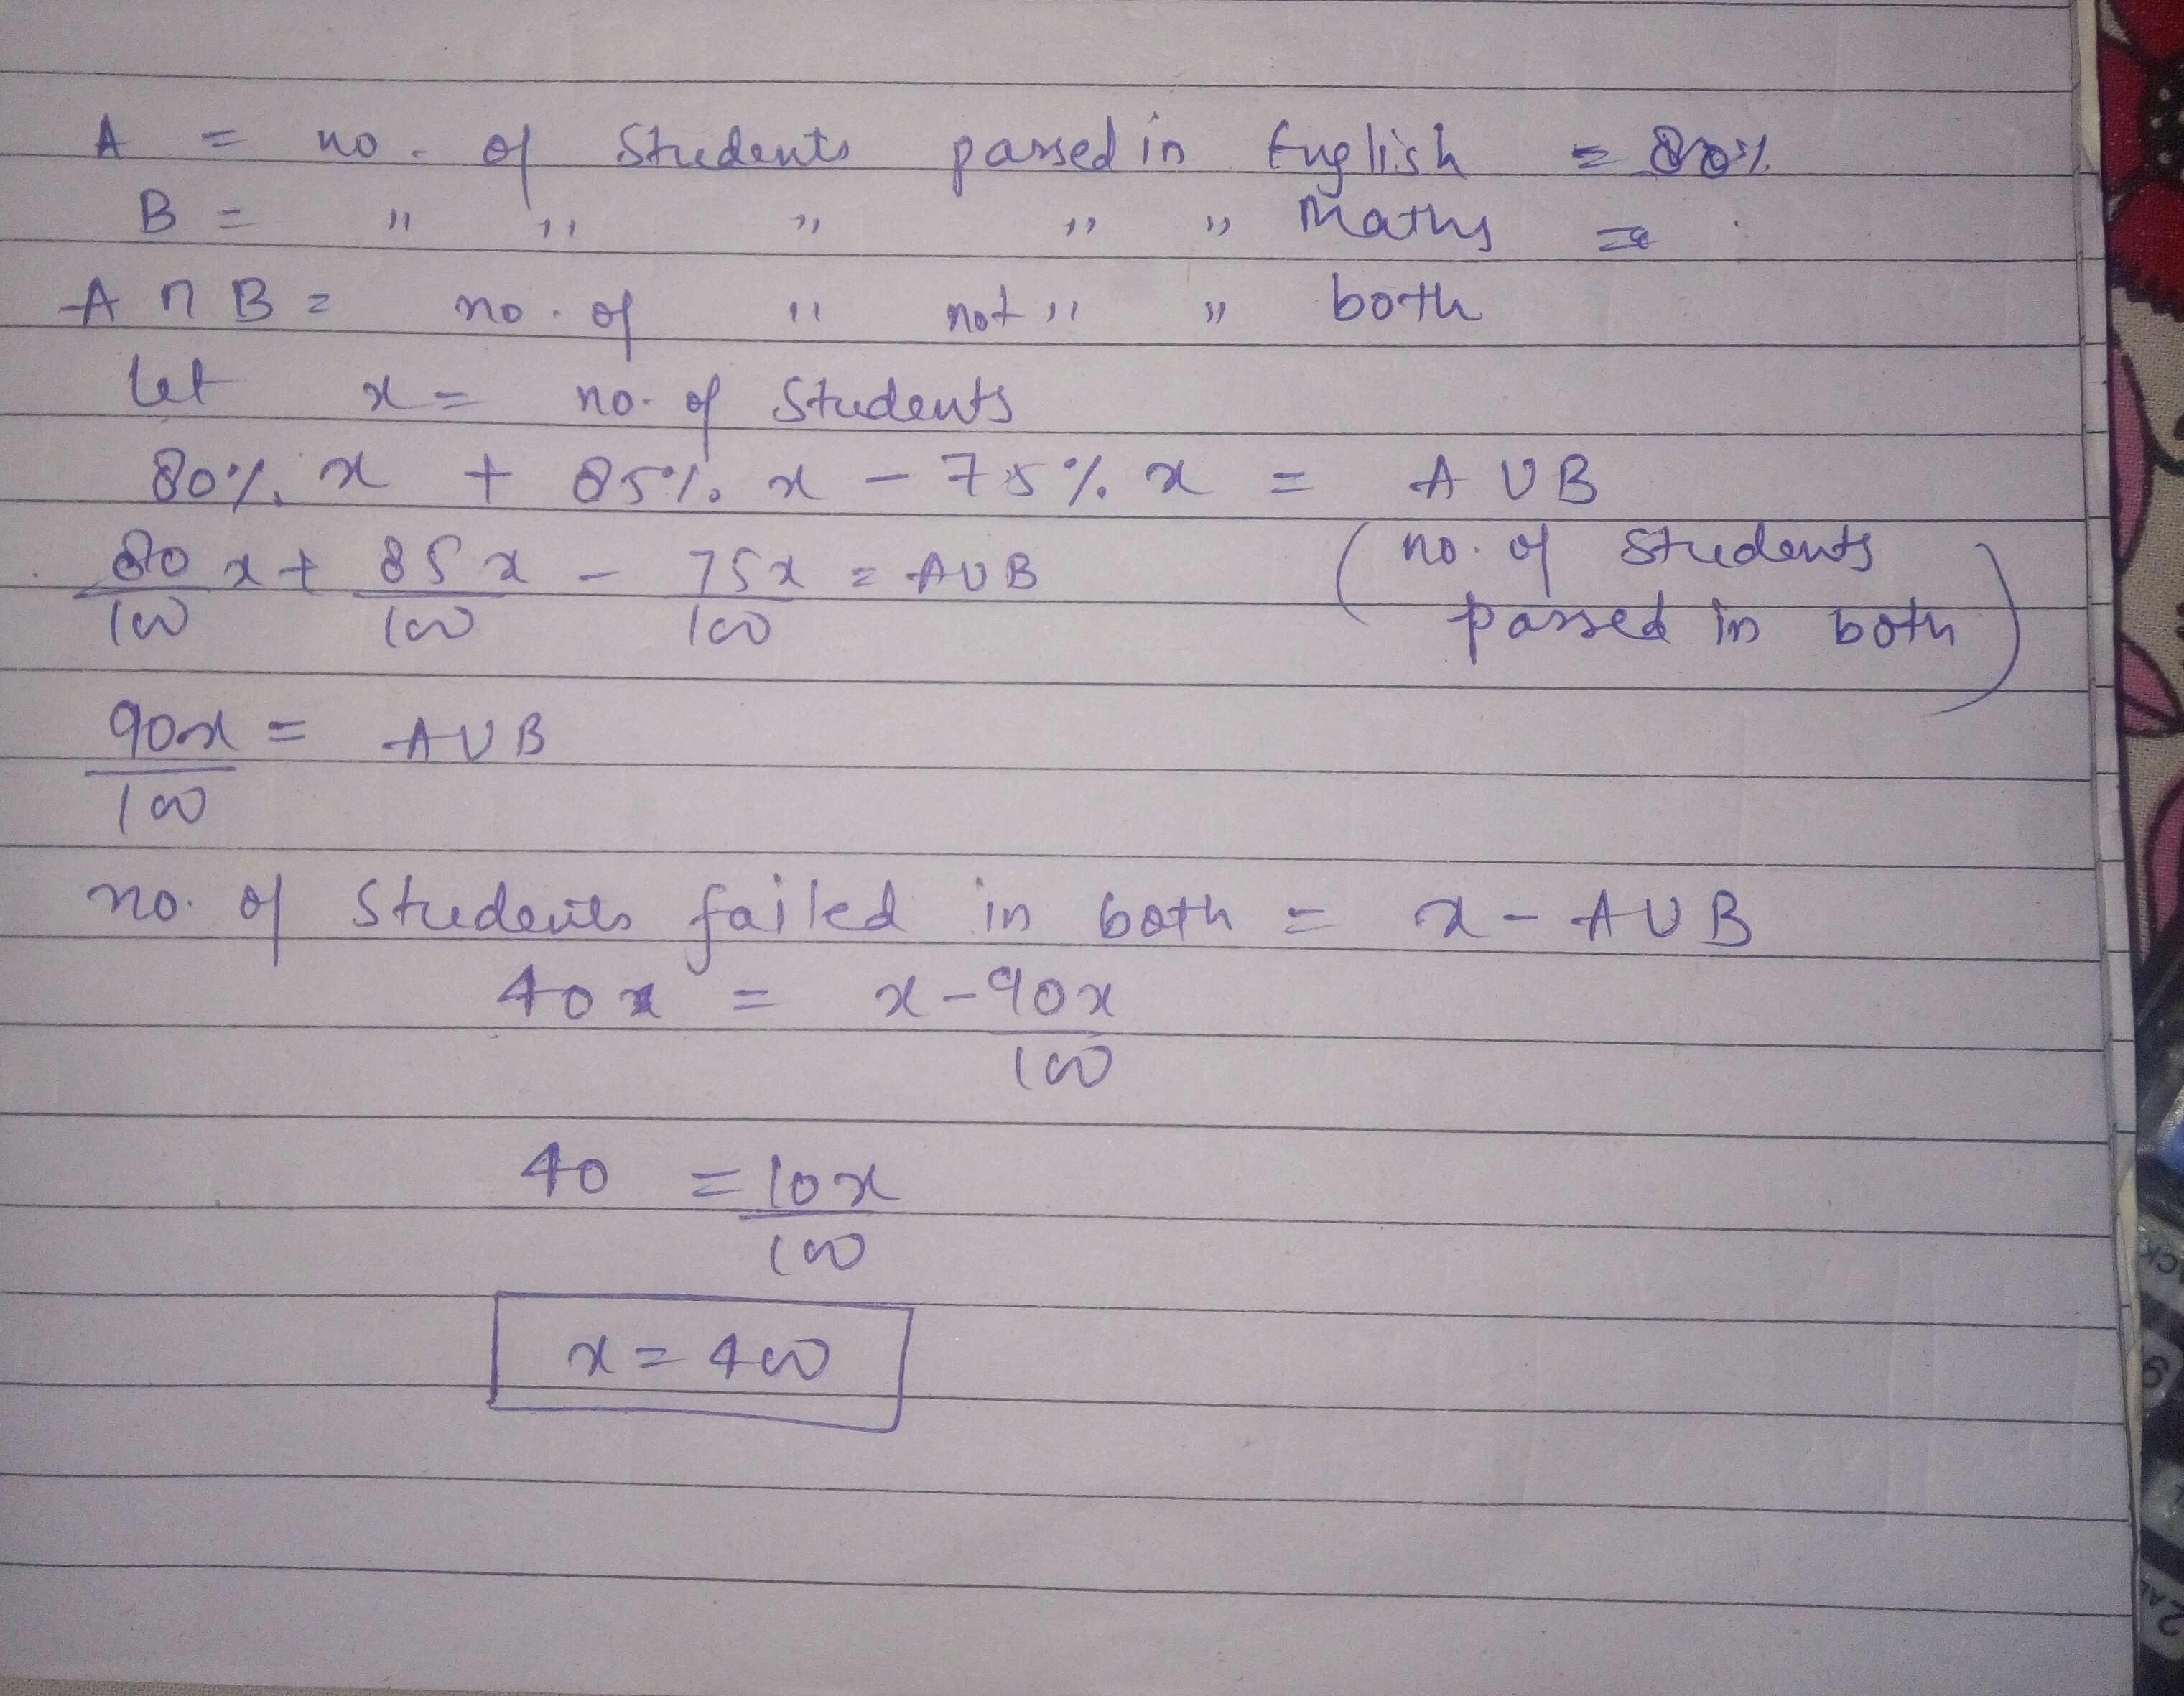 A = no. of Students passed in English = 80%
B = " " " " " Maths =
A ∩ B = no. of " not " " both
let x = no. of Students
80% x + 85% x - 75% x = A ∪ B
(no. of students passed in both)
80/100 x + 85x/100 - 75x/100 = A∪B
90x/100 = A∪B
no. of Students failed in both = x - A∪B
40 = x - 90x/100
40 = 10x/100
x = 400